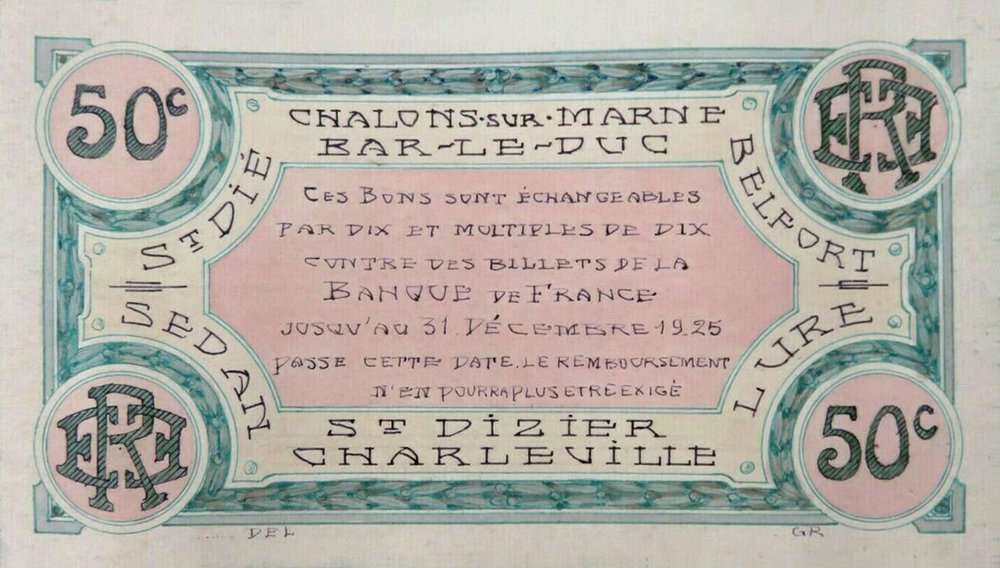 50c
CHALONS·SUR·MARNE
BAR-LE-DUC
ST DIÉ
BELFORT
CES BONS SONT ÉCHANGEABLES
PAR DIX ET MULTIPLES DE DIX
CONTRE DES BILLETS DE LA
BANQUE DE FRANCE
JUSQU'AU 31. DÉCEMBRE 1925
PASSE CETTE DATE. LE REMBOURSEMENT
N'EN POURRA PLUS ETRE EXIGÉ
SEDAN
LURE
ST DIZIER
CHARLEVILLE
50c
DEL
GR